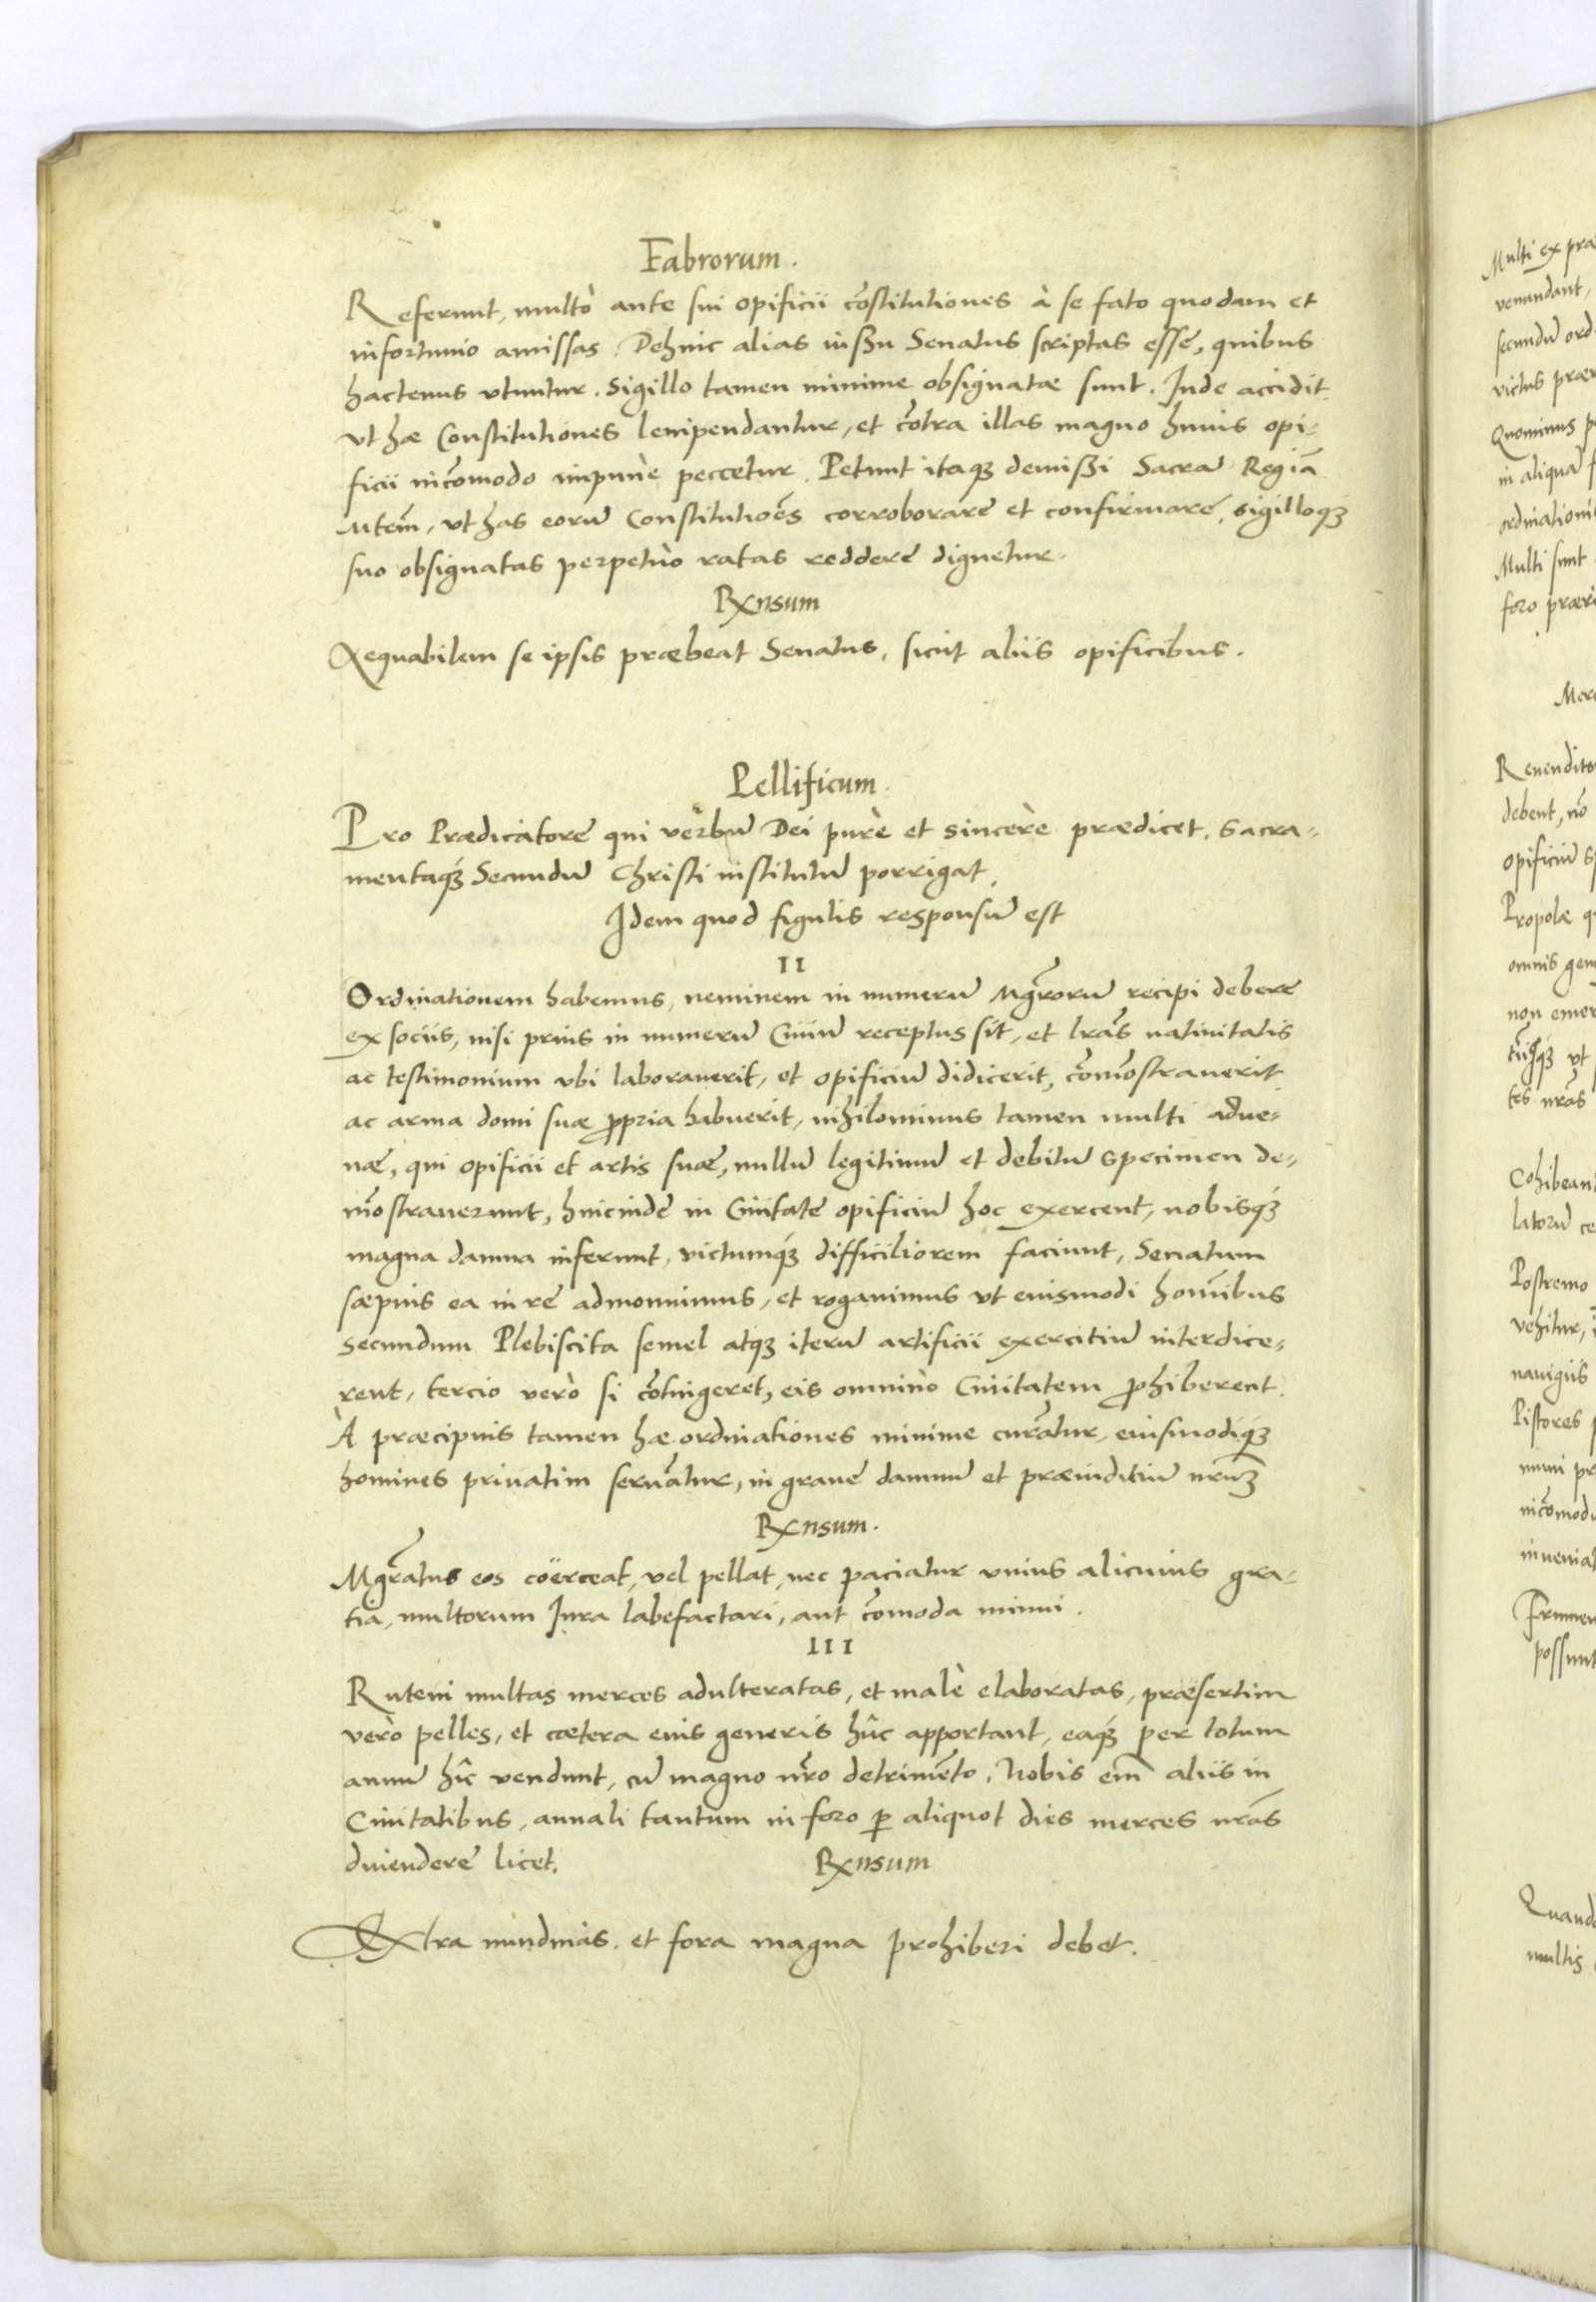 Fabrorum.
Referunt, multò ante sui opificii cõstitutiones à se fato quodam et
infortunio amissas. Dehinc alias iußu Senatus scriptas esse, quibus
hactenus vtuntur. Sigillo tamen minime obsignatae sunt. Inde accidit
vt hae Constitutiones lenipendantur, et cõtra illas magno huius opi-
ficii incõmodo impunè peccetur. Petunt itaqꝫ demißi Sacrã Regiã
Mtem̃, vt has eorũ Constitutiões corroborare et confirmare, sigilloqꝫ
suo obsignatas perpetuò ratas reddere dignetur.
Rxnsum
Aequabilem se ipsis praebeat Senatus, sicut aliis opificibus.
Pellificum.
Pro Praedicatore qui verbũ Dei purè et sincerè praedicet, Sacra-
mentaqꝫ Secundũ Christi institutũ porrigat,
Idem quod figulis responsũ est
II
Ordinationem habemus, neminem in numerũ Mgr̃orũ recipi debere
ex sociis, nisi prius in numerũ Ciuiũ receptus sit, et lrãs natiuitatis
ac testimonium vbi laborauerit, et opificiũ didicerit, cõmõstrauerit
ac arma domi suae ꝓpria habuerit, nihilominus tamen multi adue-
nae, qui opificii et artis suae, nullũ legitimũ et debitũ specimen de-
mõstrauerunt, hincinde in Ciuitate opificiũ hoc exercent, nobisqꝫ
magna damna inferunt, victumqꝫ difficiliorem faciunt, Senatum
saepius ea in re admonuimus, et rogauimus vt eiusmodi homĩbus
secundum Plebiscita semel atqꝫ iterũ artificii exercitiũ interdice-
rent, tercio verò si cõtingeret, eis omnino Ciuitatem ꝓhiberent.
À praecipuis tamen hae ordinationes minime curãtur, eiusmodiqꝫ
homines priuatim seruãtur, in graue damnũ et praeiuditiũ nrũꝫ
Rxnsum.
Mgr̃atus eos coërceat, vel pellat, nec paciatur vnius alicuius gra-
tia, multorum Iura labefactari, aut cõmoda minui.
III
Ruteni multas merces adulteratas, et malè elaboratas, praesertim
verò pelles, et caetera eius generis hûc apportant, eaqꝫ per totum
annũ hîc vendunt, cũ magno nr̃o detrimẽto. Nobis em̃ aliis in
Ciuitatibus, annali tantum in foro ꝑ aliquot dies merces nrãs
diuendere licet.
Rxnsum
Extra nundinas. et fora magna prohiberi debet.
Multi ex prae
venundant,
secundũ ord
victus praer
Quominus p
in aliquã f
ordinationi
Multi sunt
foro praeri
Merc
Reuendito
debent, nõ
opificiũ
Propolae q
omnis gen
non emer
vt
tes nrãs
Cohibeant
latorũ ce
Postremo
vehitur,
nauigiis
Pistores
pr
incõmodu
inueniat
Frumen
possunt
Quando
multis